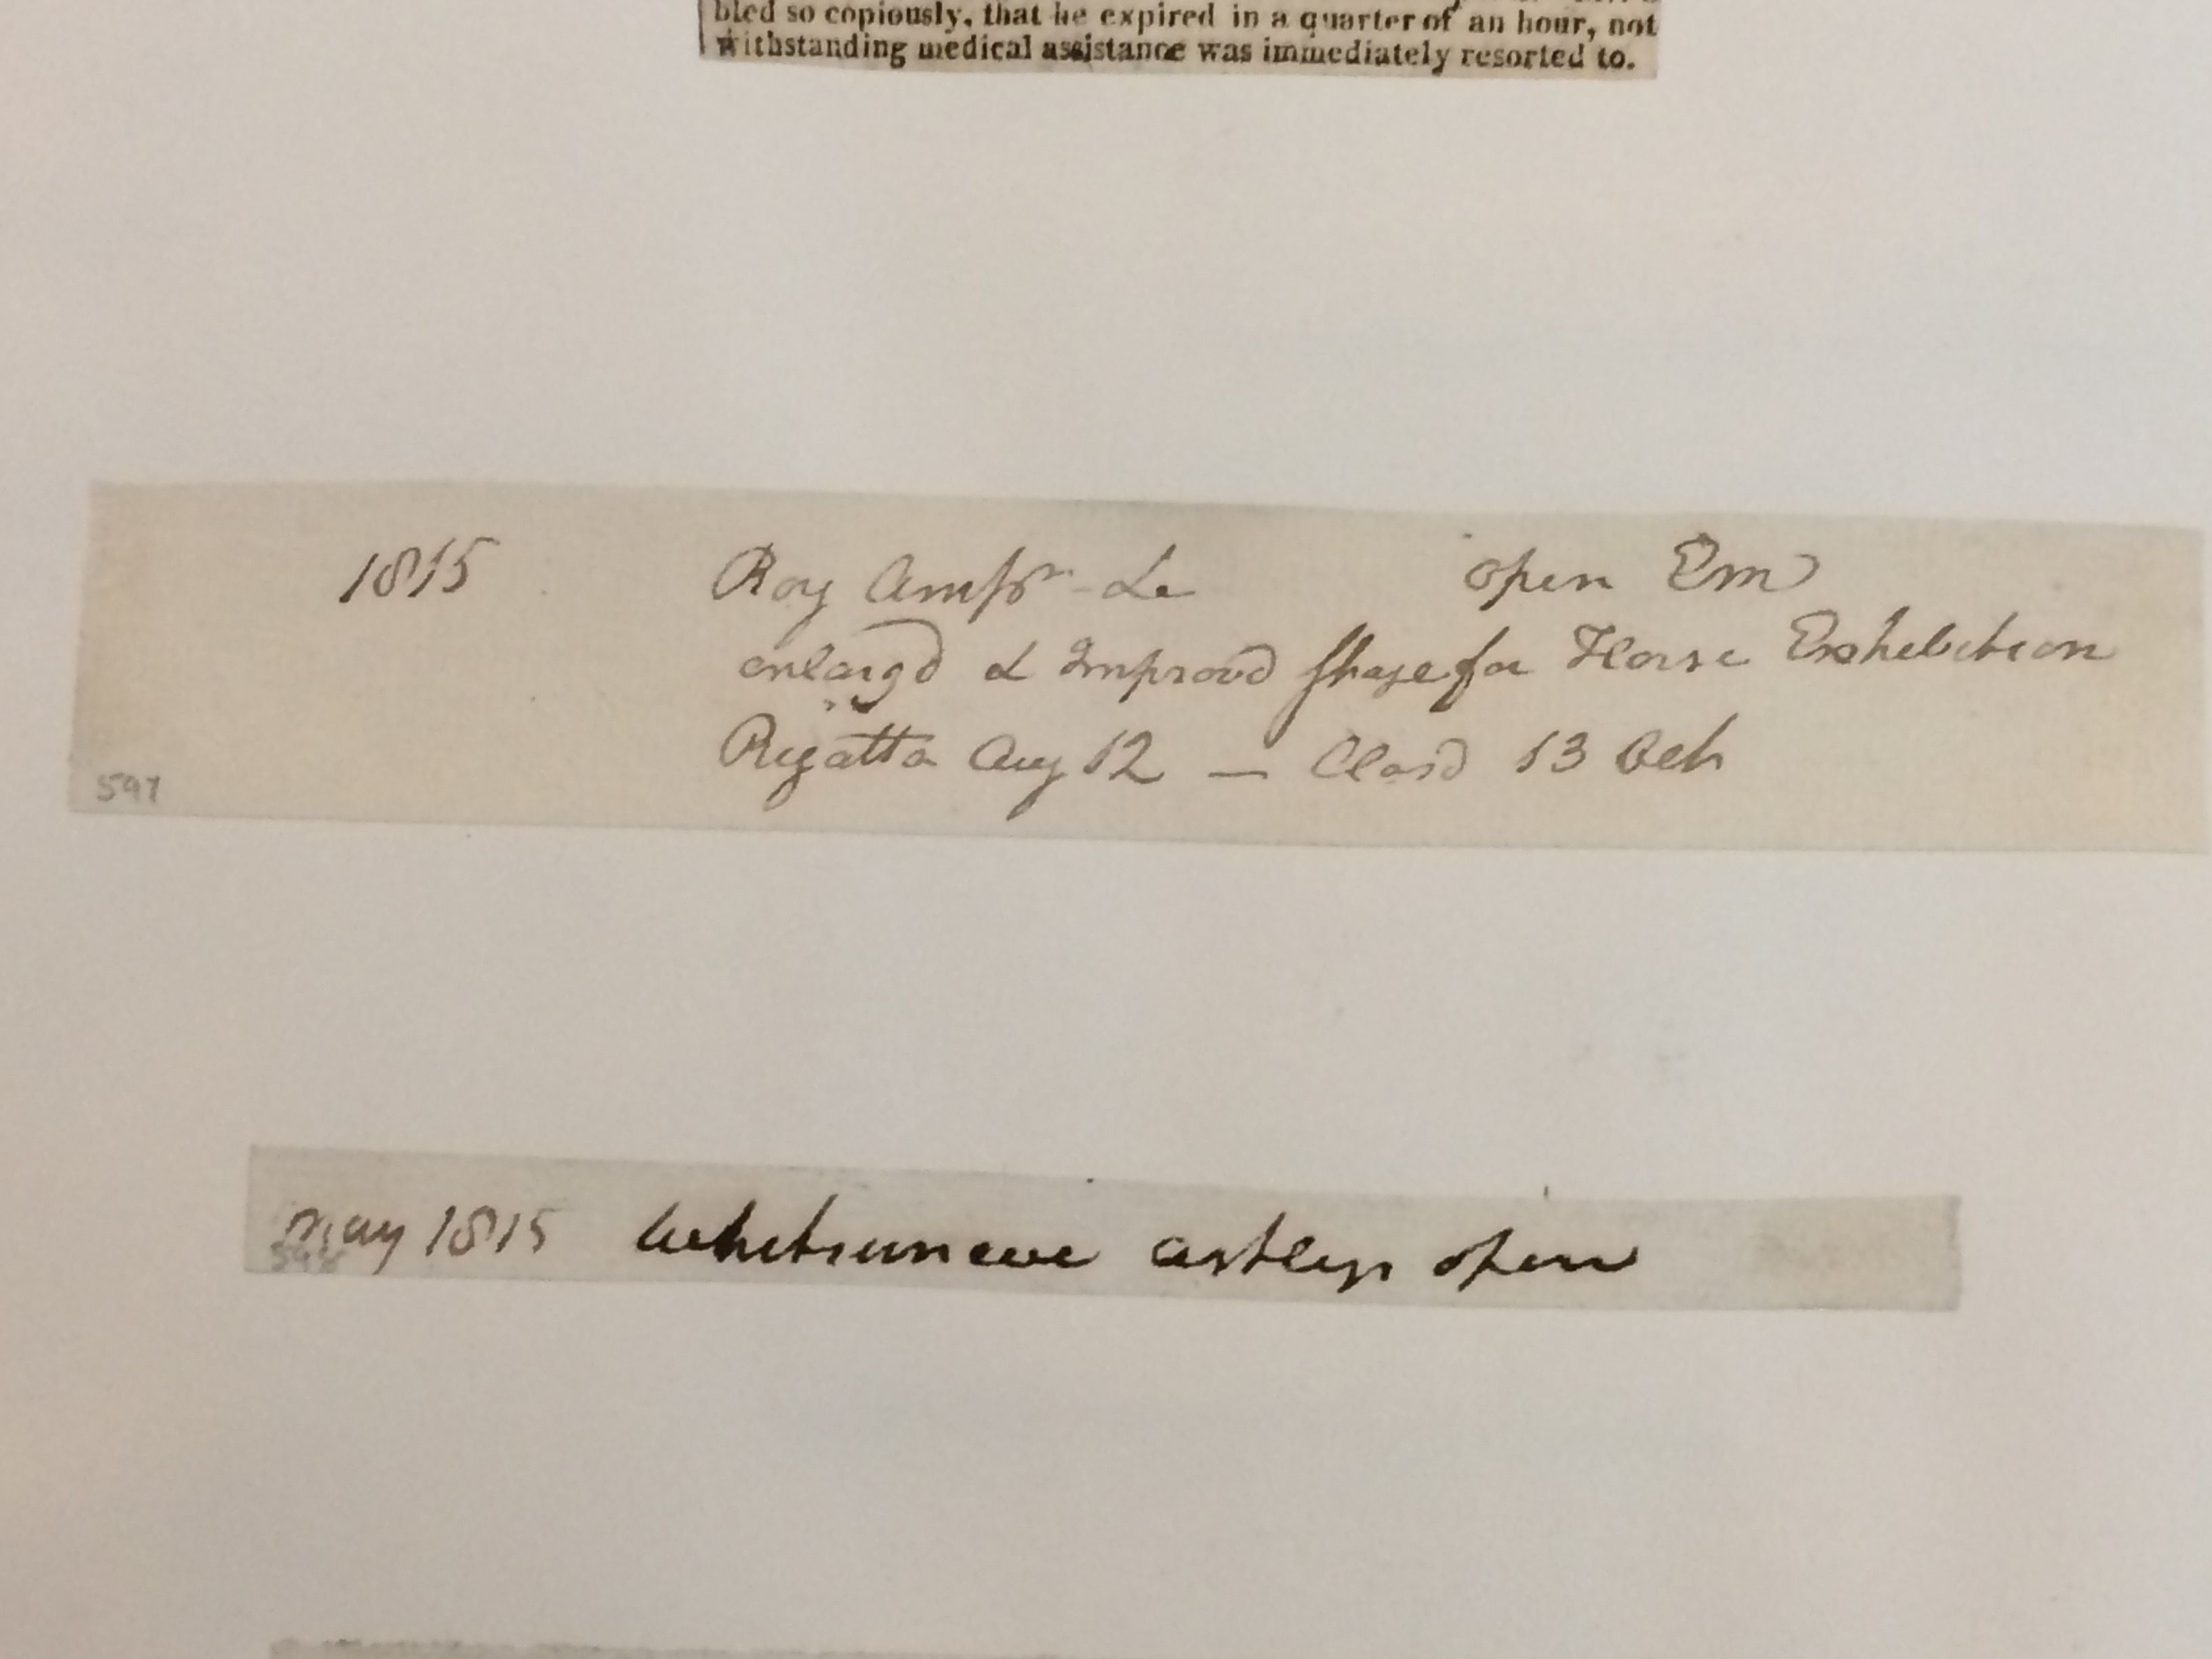 bled so copiously, that he expired in a quarter of an hour, not
withstanding medical assistance was immediately resorted to.
1815 Roy Amphr - La open Em
enlargd & Improvd Stage for Horse Exhebition
Regatta Aug 12 — Closd 13 Oct
597
may 1815 Whitsun eve astleys open
598